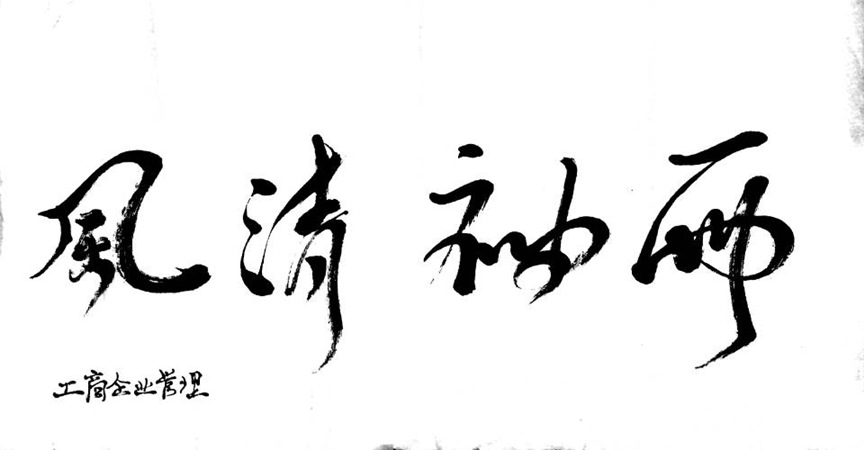 兩袖清風
工商企业管理